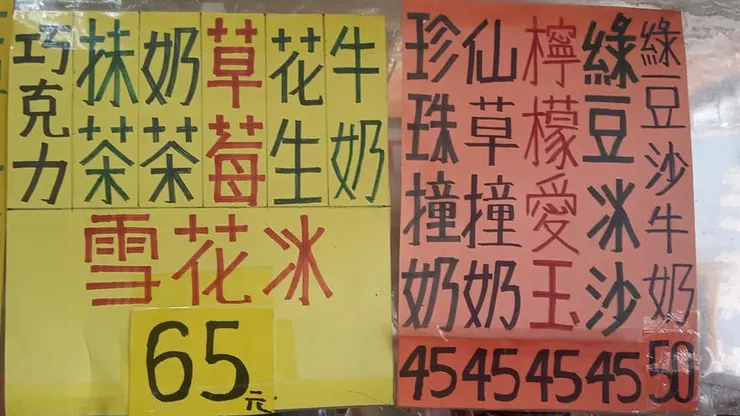 巧克力
抹茶
奶茶
草莓
花生
牛奶
雪花冰
65元
珍珠撞奶
45
仙草撞奶
45
檸檬愛玉
45
綠豆冰沙
45
綠豆沙牛奶
50